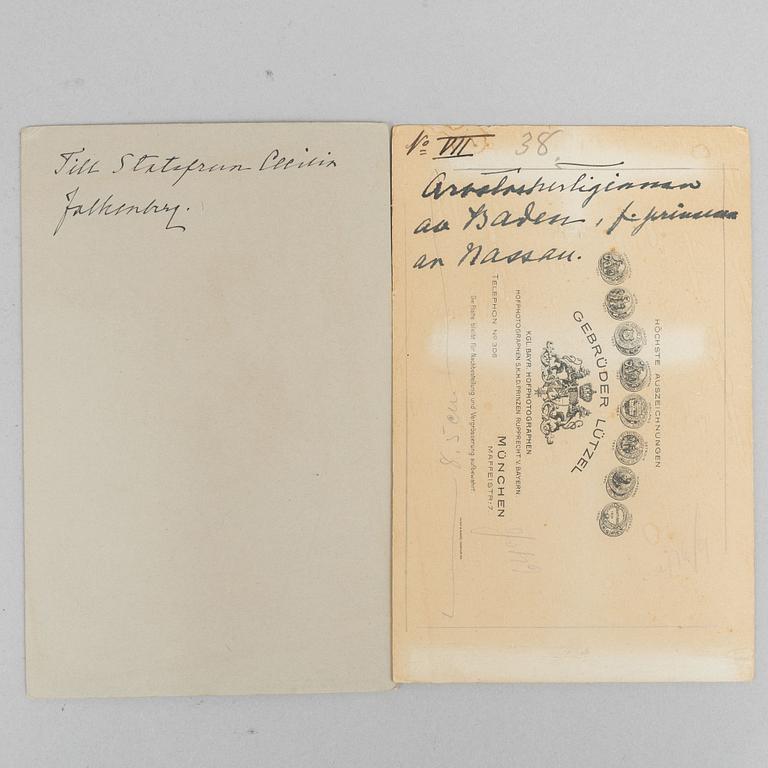 Till Statsfrun Cecilia
Falkenberg.
No VII 38
Arvstorhertiginnan
av Baden, f. prinsessa
av Nassau.
HÖCHSTE AUSZEICHNUNGEN
GEBRÜDER LÜTZEL
KGL. BAYR. HOFPHOTOGRAPHEN
HOFPHOTOGRAPHEN S.K.H.D. PRINZEN RUPPRECHT V. BAYERN
MÜNCHEN
TELEPHON No 306 MAFFEISTR. 7
Die Platte bleibt für Nachbestellung und Vergrösserung aufbewahrt.